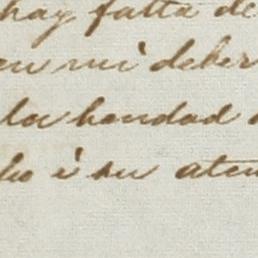 hay falta de
en mi deber
la bondad
ho i su aten